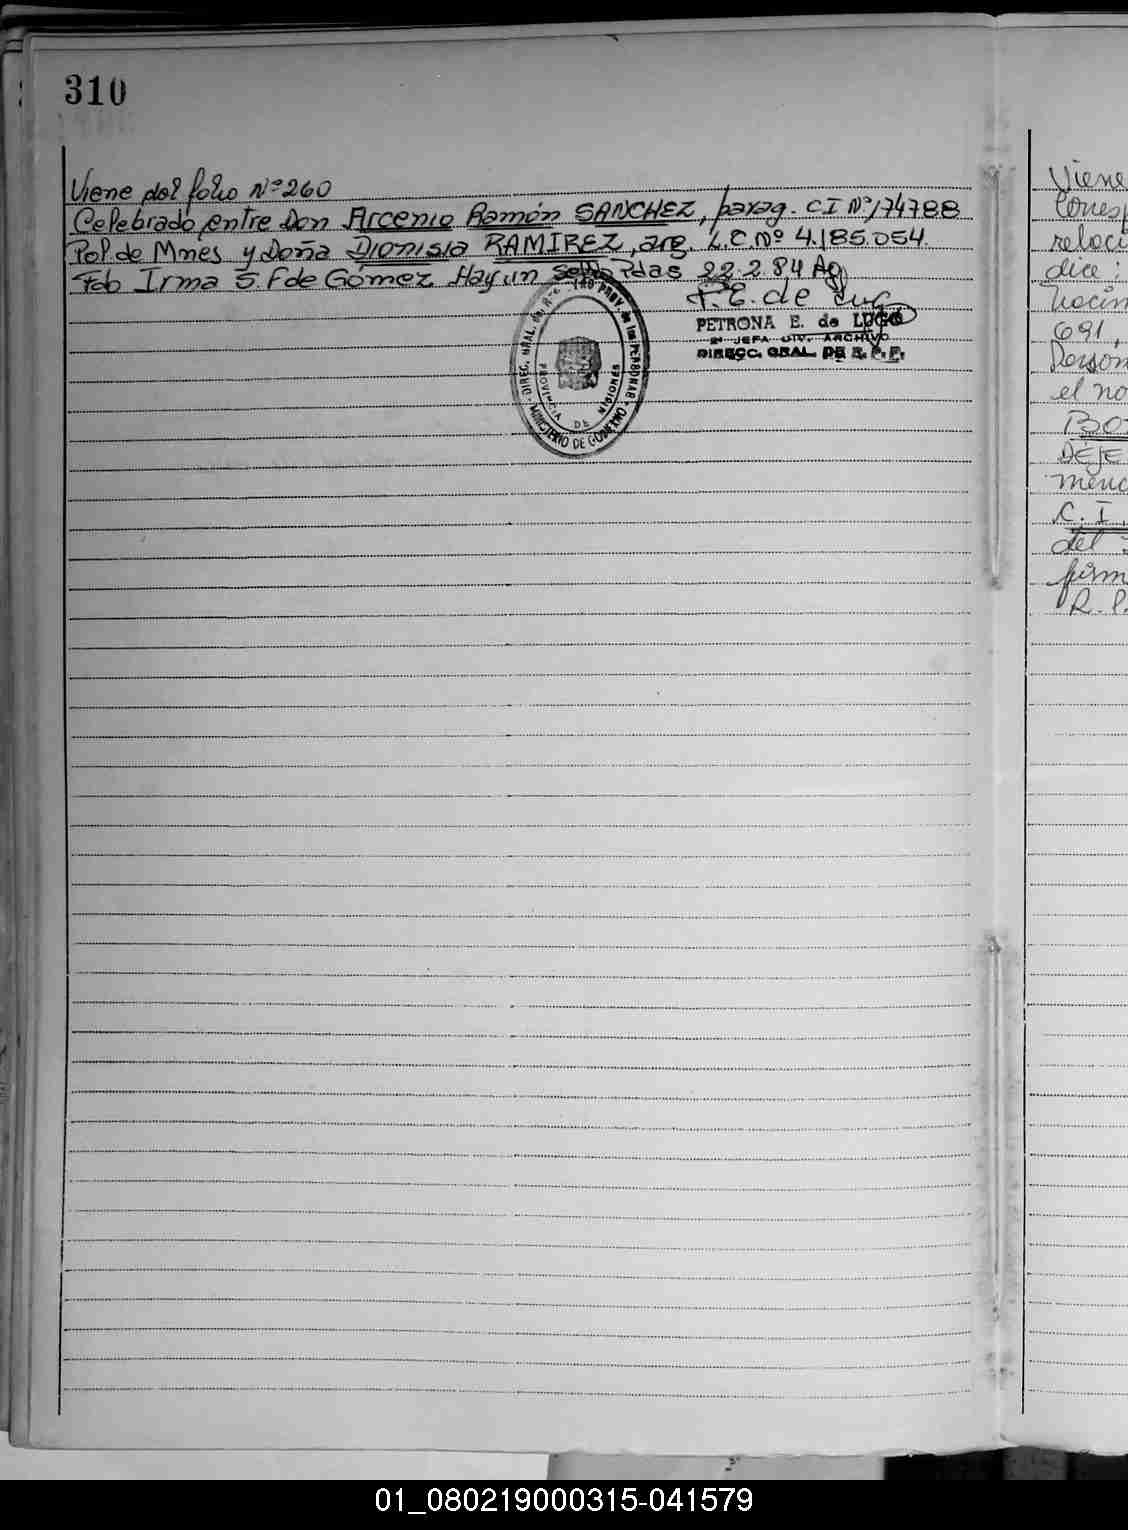 310
Viene del folio Nº 260
Celebrado entre Don Arcenio Ramón SANCHEZ, parag. C I Nº 174788
Pol. de Mnes y Doña Dionisia RAMIREZ, arg. L.C. Nº 4.185.054.
Fdo Irma S. F de Gómez Hay un sello Pdas 22-2-84 Ag
P. E. de Lugo
PETRONA E. de LUGO
2ª JEFA DIV. ARCHIVO
DIRECC. GRAL. DE R. P. P.
DIREC. GRAL. del R PROV. de las PERSONAS
PROVINCIA DE MISIONES
MINISTERIO DE GOBIERNO
Viene
Corresp
relaci
dice:
Nacim
691,
Person
el no
DÉJE
menc
C. I.
del
firm
R. P.
01_080219000315-041579